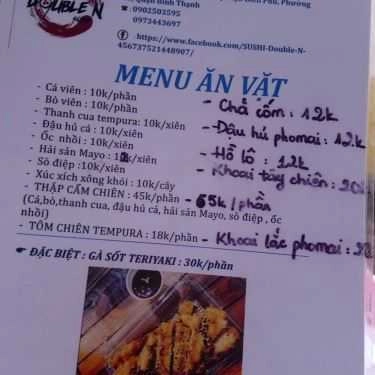 DOUBLE N
Quận Bình Thạnh Phủ, Phường
: 0902503595
0973443697
: https://www.facebook.com/SUSHI-Double-N-
456737521448907/
MENU ĂN VẶT
- Cá viên : 10k/phần
- Bò viên : 10k/phần
- Thanh cua tempura: 10k/xiên
- Đậu hủ cá : 10k/xiên
- Ốc nhồi : 10k/xiên
- Hải sản Mayo : 12k/xiên
- Sò điệp : 10k/xiên
- Xúc xích xông khói : 10k/cây
- THẬP CẨM CHIÊN : 45k/phần - 65k/phần
(Cá,bò,thanh cua, đậu hủ cá, hải sản Mayo, sò điệp , ốc
nhồi)
- TÔM CHIÊN TEMPURA : 18k/phần
- Chả cốm : 12k
- Đậu hủ phomai : 12k
- Hồ lô : 12k
- Khoai tây chiên : 20k
- Khoai lắc phomai :
ĐẶC BIỆT : GÀ SỐT TERIYAKI : 30k/phần